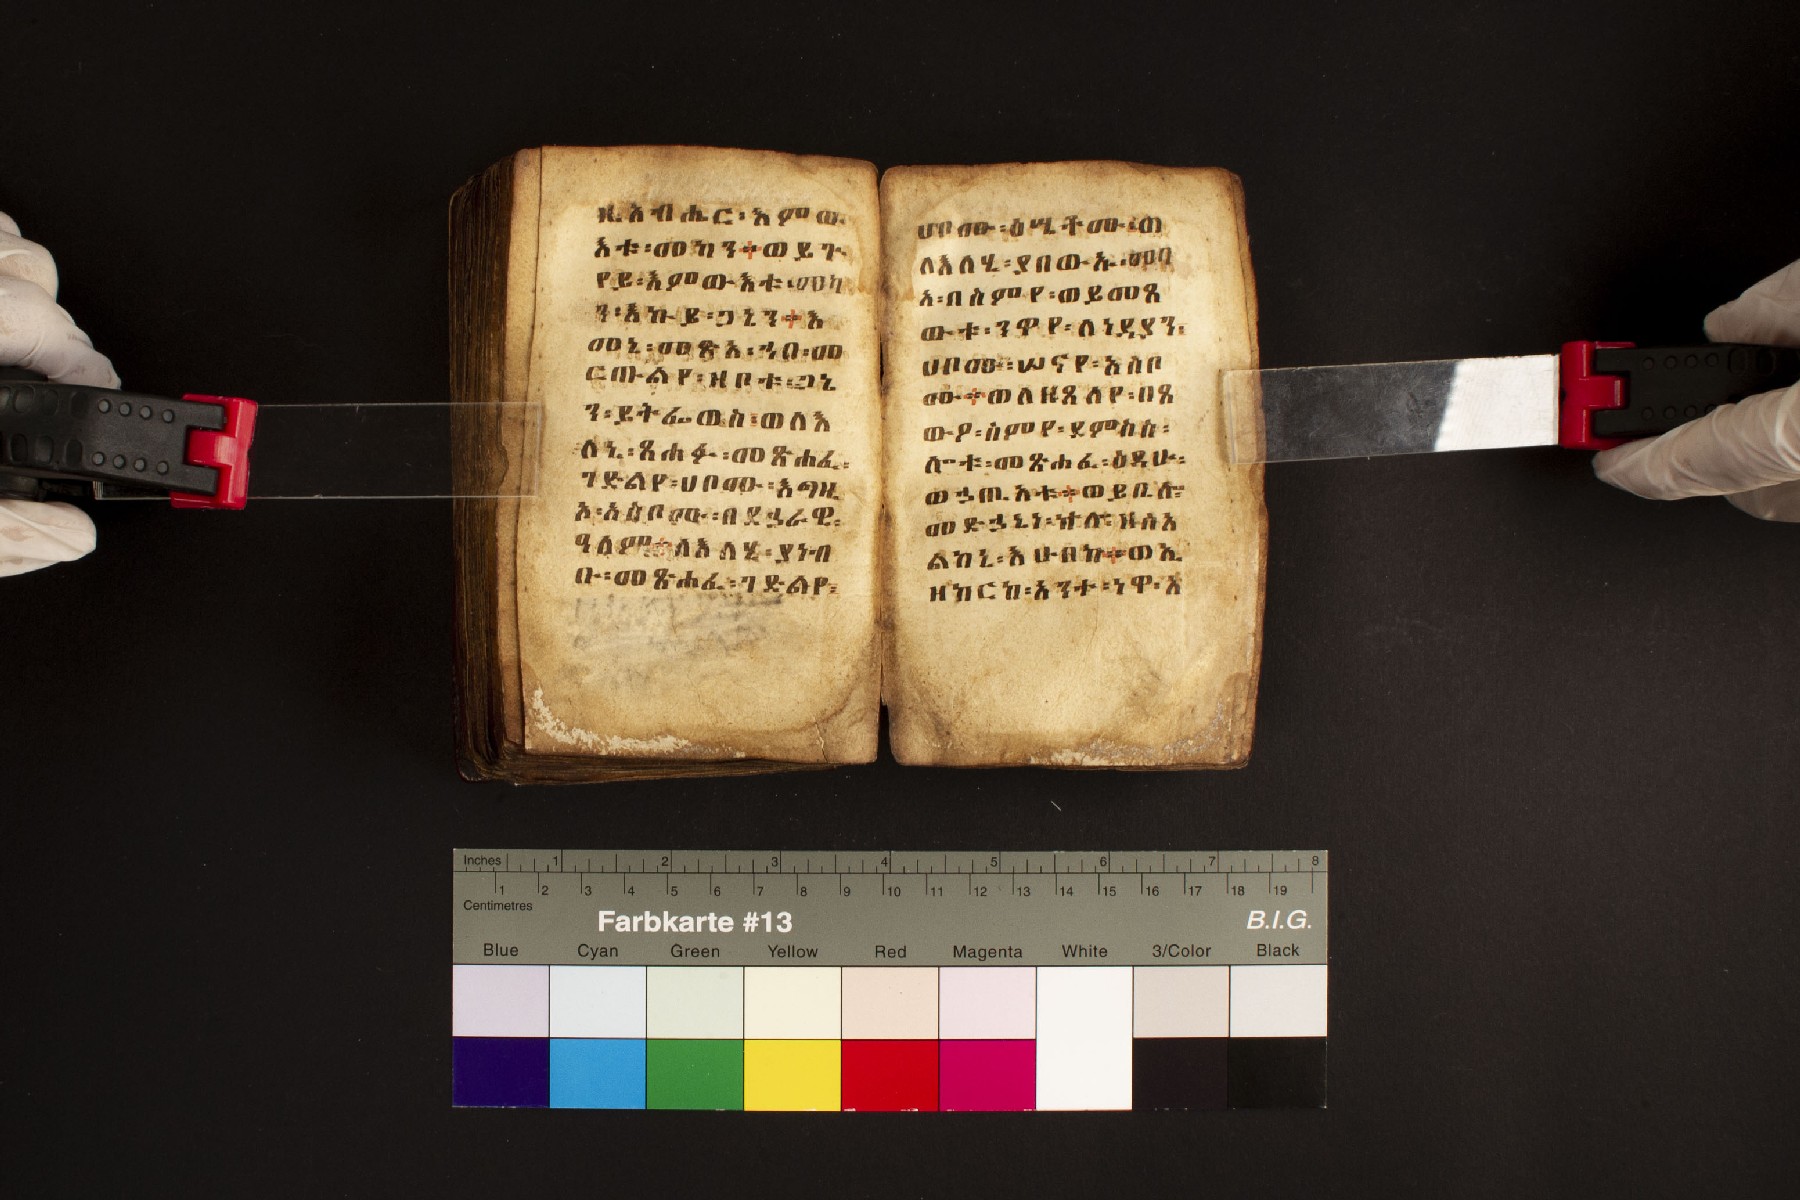 ዚአብሔር፡እምው
እቱ፡መካን፡ወይጉ
የይ፡እምውእቱ፡መካ
ን፡እኩይ፡ጋኔን፡እ
መኒ፡መፅአ፡ኀበ፡መ
ርጡልየ፡ዘቦቱ፡ጋኔ
ን፡ይትፌወስ፡ወለእ
ለኒ፡ጸሐፉ፡መጽሐፈ፡
ገድልየ፡ሀቦሙ፡እግዚ
አ፡አስቦሙ፡በደኃራዊ፡
ዓለም፡ለእለሂ፡ያነብ
ቡ፡መጽሐፈ፡ገድልየ፡
ሀቦሙ፡ዕሤቶሙ፡ወ
ለእለሂ፡ያበውኡ፡መባ
አ፡በስምየ፡ወይመጸ
ውቱ፡ንዋየ፡ለነዳያን፡
ሀቦሙ፡ሠናየ፡አስቦ
ሙ፡ወለዘጸለየ፡በጸ
ውዖ፡ስምየ፡ደምስስ፡
ሎቱ፡መጽሐፈ፡ዕዳሁ፡
ወኃጢአቱ፡ወይቤሎ፡
መድኃኒነ፡ዝሎ፡ዘሰአ
ልከኒ፡እሁበከ፡ወኢ
ዘከርከ፡አንተ፡ነዋ፡አ
Inches 1 2 3 4 5 6 7 8
1 2 3 4 5 6 7 8 9 10 11 12 13 14 15 16 17 18 19
Centimetres
Farbkarte #13 B.I.G.
Blue Cyan Green Yellow Red Magenta White 3/Color Black